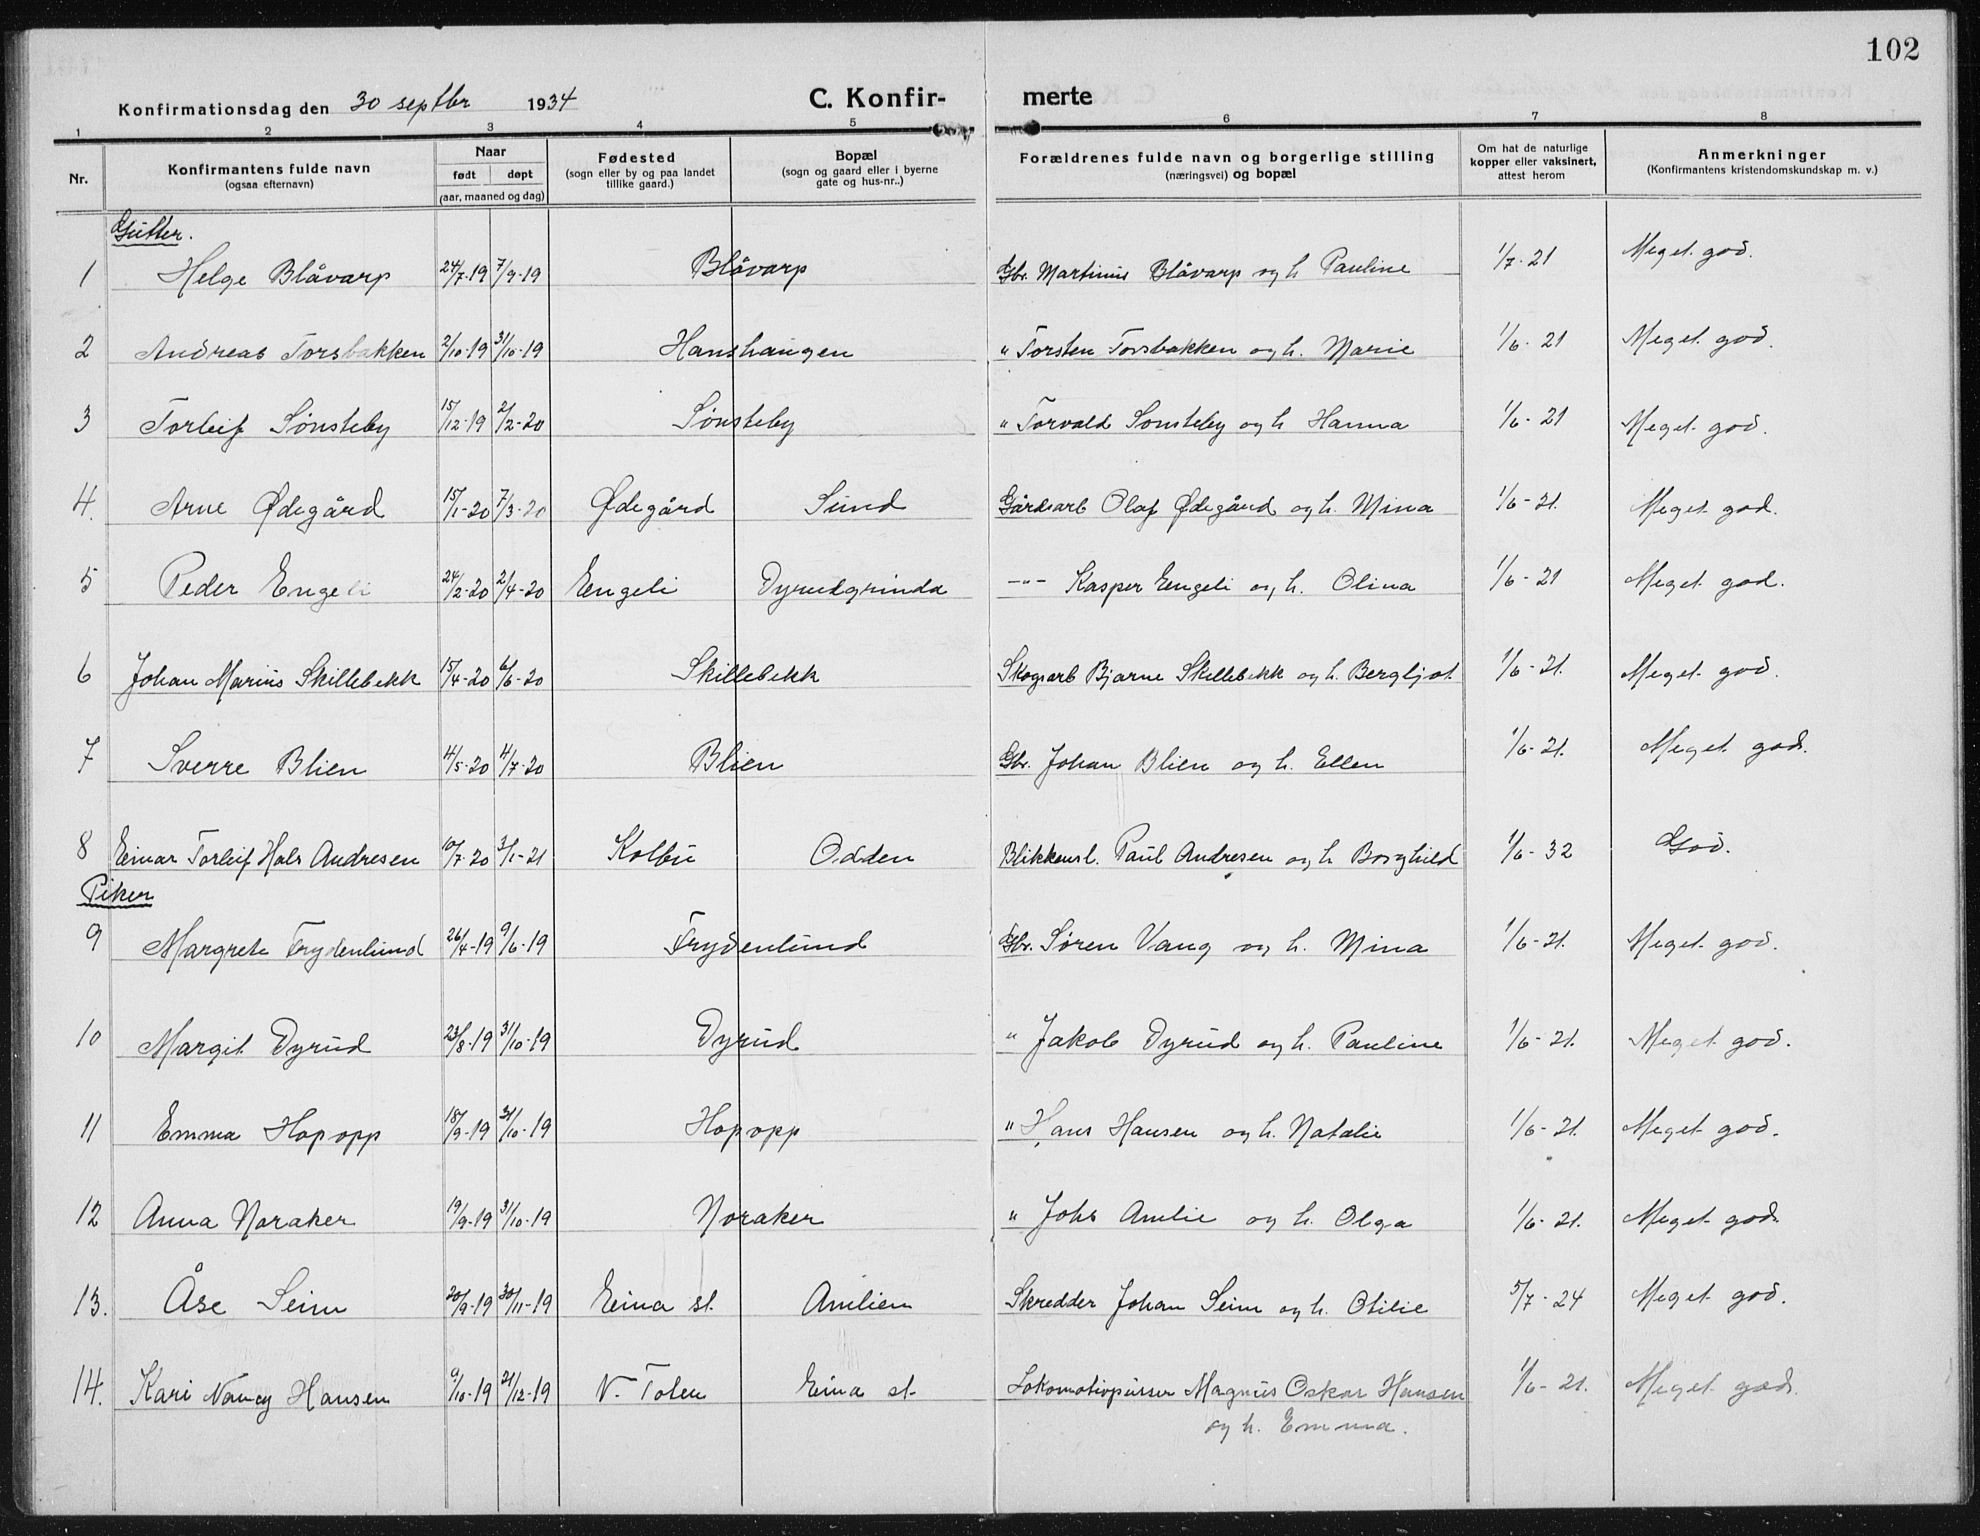 102
Konfirmationsdag den 30 septbr 1934 C. Konfir- merte
1 2 3 4 5 6 7 8
Nr. Konfirmantens fulde navn (ogsaa efternavn) Naar født døpt (aar, maaned og dag) Fødested (sogn eller by og paa landet tillike gaard.) Bopæl (sogn og gaard eller i byerne gate og hus-nr..) Forældrenes fulde navn og borgerlige stilling (næringsvei) og bopæl Om hat de naturlige kopper eller vaksinert, attest herom Anmerkninger (Konfirmantens kristendomskundskap m. v.)
Gutter.
1 Helge Blåvarp 24/7-19 7/9-19 Blåvarp Gbr. Martinus Blåvarp og h. Pauline 1/7-21 Meget god.
2 Andreas Torsbakken 2/10-19 31/10-19 Hanshaugen " Torsten Torsbakken og h. Marie 1/6-21 Meget god.
3 Torleif Sønsteby 15/12-19 2/2-20 Sønsteby " Torvald Sønsteby og h Hanna 1/6-21 Meget god.
4. Arne Ødegård 15/1-20 7/3-20 Ødegård Sund Gårdsarb Olaf Ødegård og h. Mina 1/6-21. Meget god.
5 Peder Engeli 24/2-20 2/4-20 Engeli Dyrudgrinda -"- Kasper Engeli og h. Olina 1/6-21 Meget god.
6 Johan Marius Skillebekk 15/4-20 6/6-20 Skillebekk Skogsarb Bjarne Skillebekk og h. Bergljot 1/6-21. Meget god.
7 Sverre Blien 4/5-20 4/7-20 Blien Gbr. Johan Blien og h. Ellen 1/6-21. Meget god.
8 Einar Torleif Hals Andresen 10/7-20 3/1-21 Kolbu Odden Blikkensl. Paul Andresen og h Borghild 1/6-32 God.
Piker
9 Margrete Frydenlund 26/4-19 9/6-19 Frydenlund Gbr. Søren Vang og h. Mina 1/6-21. Meget god.
10 Margit Dyrud 23/8-19 31/10-19 Dyrud " Jakob Dyrud og h. Pauline 1/6-21. Meget god.
11 Emma Hopopp 18/9-19 31/10-19 Hopopp " Hans Hansen og h. Natalie 1/6-21. Meget god.
12 Anna Noraker 19/9-19 31/10-19 Noraker " Johs Amlie og h. Olga 1/6-21. Meget god.
13. Åse Seim 20/9-19 30/11-19 Eina st. Amlien Skredder Johan Seim og h. Otilie 5/7-24 Meget god.
14. Kari Nancy Hansen 9/10-19 21/12-19 V. Toten Eina st. Lokomotivpusser Magnus Oskar Hansen 1/6-21. Meget god.
og h. Emma.